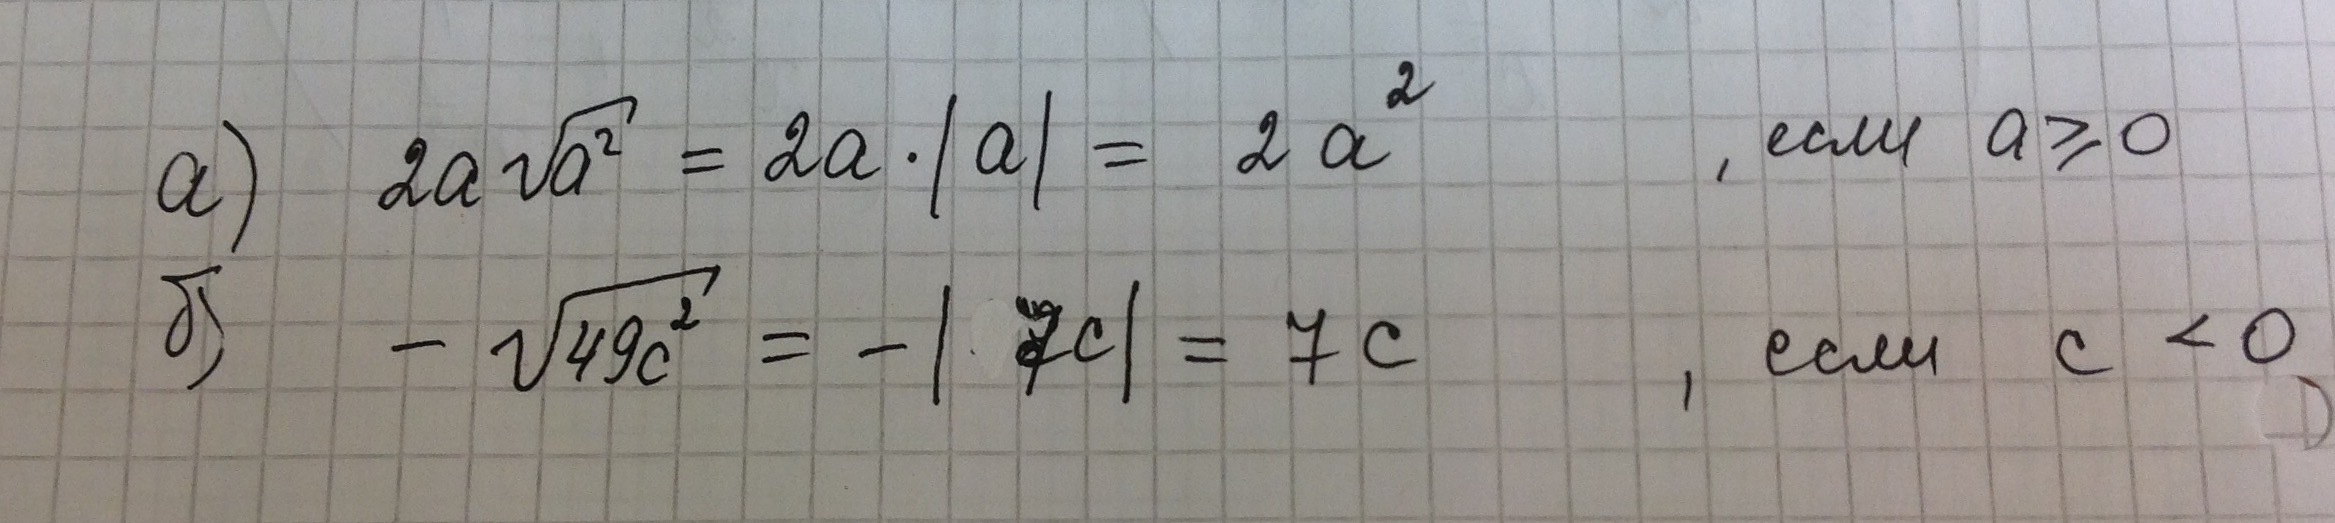 а) 2a√a² = 2a·|a| = 2a² , если a ⩾ 0
б) - √49c² = -|7c| = 7c , если c < 0